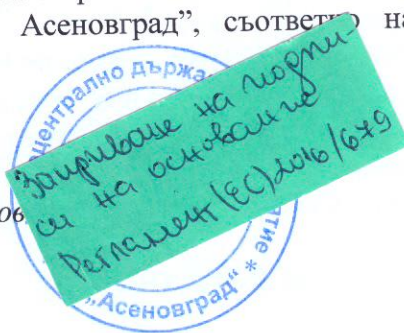 Асеновград”, съответно на
Заличаване на подпи-
си на основание
Регламент (ЕС) 2016/679
ов
централно държа
ятие * „Асеновград“ *